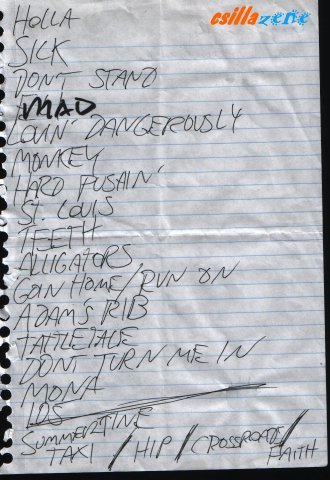 csillazene
HOLLA
SICK
DONT STAND
MAD
LOVIN' DANGEROUSLY
MONKEY
HARD PUSAIN'
ST. LOUIS
TEETH
ALLIGATORS
GOIN HOME/RUN ON
ADAM'S RIB
TATTLETALE
DONT TURN ME IN
MONA
IDS
SUMMERTIME
TAXI / HIP / CROSSROADS / FAITH